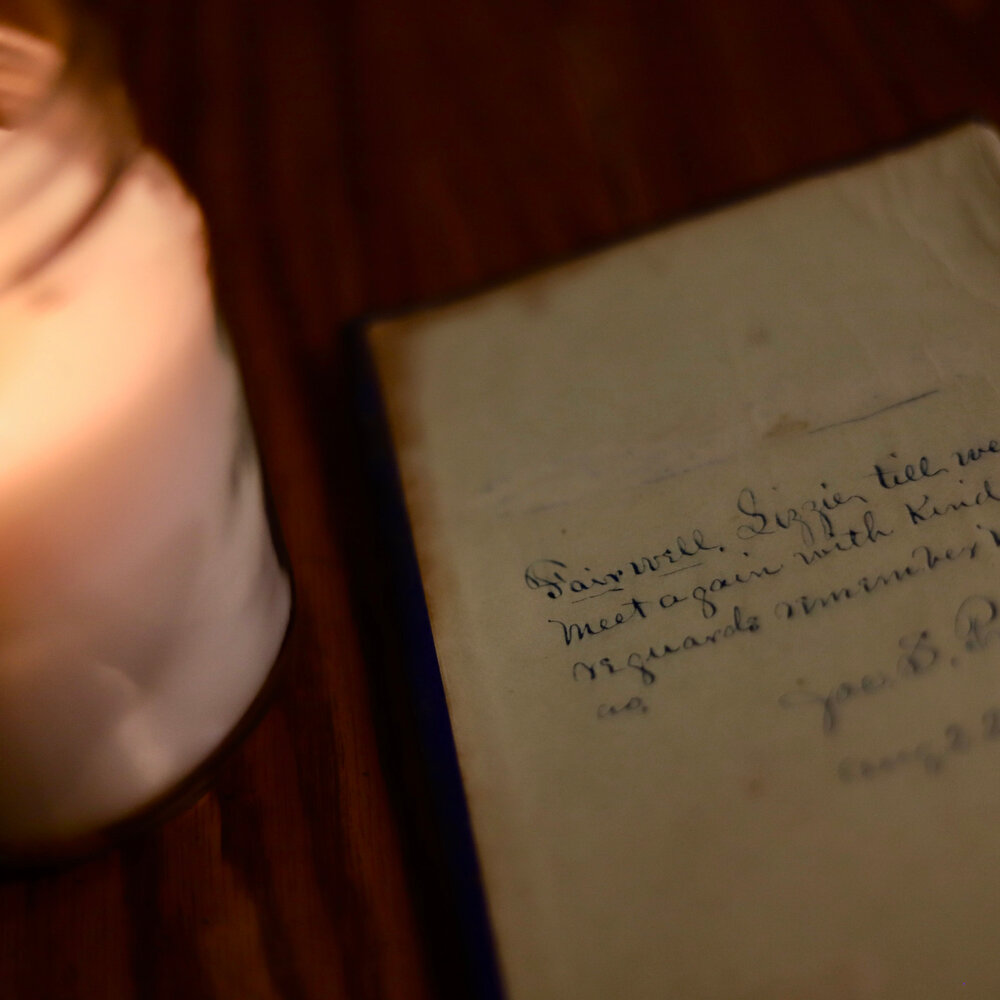 Fairwell, Lizzie, till we
Meet again with Kind
reguards remember
us.
Jac. B.
Aug 22